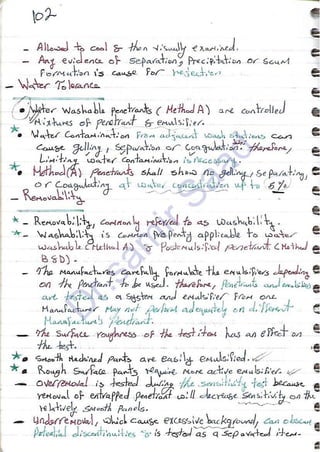 102
- Allowed to cool & then visually examined.
- Any evidence of separation, Precipitation or scum
Formation is cause For rejection
- Water Tolerance
• Water Washable penetrants (Method A) are controlled
Mixtures of penetrant & emulsifier.
• Water Contamination From adjacent wash stations can
Cause gelling, separation or Coagulation. therefore,
Limiting water contamination is necessary.
• Method(A) penetrants shall show no gelling, separating,
or Coagulating at water concentration up to 5%
- Removability
- Removability, commonly referred to as washability.
- Washability is common Property applicable to water
washable (Method A) & Postemulsified penetrant (Method
B & D).
- The Manufactures carefully formulate the emulsifiers depending
on the Penetrant to be used. therefore, Penetrants and emulsifiers
are tested as a System and emulsifier From one
Manufacturer May not perform adequately on different
Manufacturer's Penetrant.
- The Surface roughness of the test item has an effect on
the test.
• Smooth Machined parts are easily emulsified.
• Rough Surface parts require More active emulsifier.
- Overremoval is tested during the sensitivity test because
removal of entrapped penetrant will decrease Sensitivity on the
relatively smooth Panels.
- Underremoval, which cause excessive background, can obscure
Potential discontinuities is tested as a separated item.